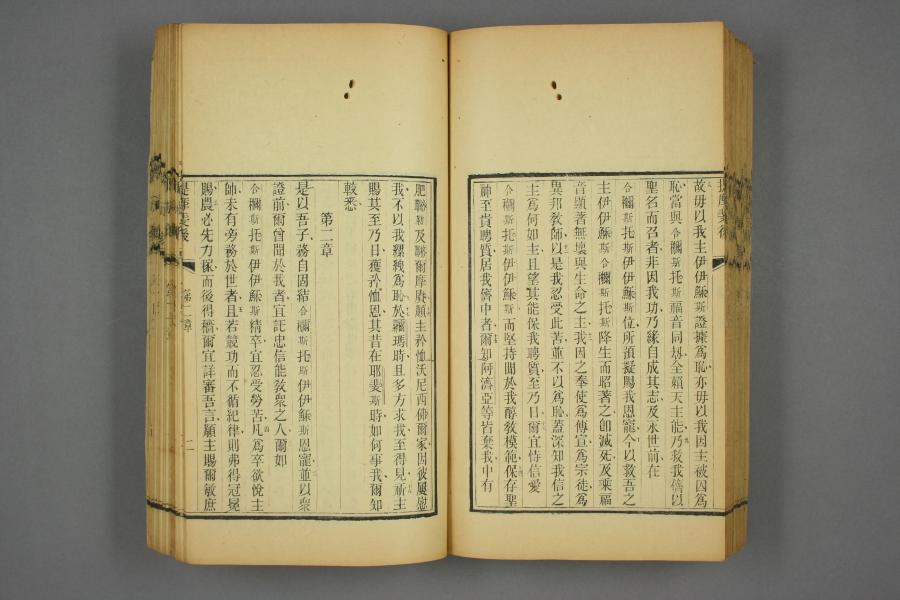 提摩斐後
故毋以我主伊伊穌斯證據爲恥亦毋以我因主被囚爲
恥當與合櫔斯托斯福音同刼全賴天主能乃救我儕以
聖名而召者非因我功乃緣自成其志及永世前在
合櫔斯托斯伊伊穌斯位所預擬賜我恩寵今以救吾之
主伊伊穌斯合櫔斯托斯降生而昭著之卽滅死及秉福
音顯著無壞與生命之主我因之奉使爲傳宣爲宗徒爲
異邦敎師以是我忍受此苦並不以爲恥蓋深知我信之
主爲何如主且望其能保我聘質至乃日爾宜恃信愛
合櫔斯托斯伊伊穌斯而堅持聞於我醇敎模範保存聖
神至貴聘質居我儕中者爾知阿濟亞等皆棄我中有
肥聊勒及聊爾摩賡願主矜恤沃尼西佛爾家因彼屢慰
我不以我縲絏爲恥於羅瑪時且多方求我至得見祈主
賜其至乃日獲矜恤恩其昔在耶斐斯時如何事我爾知
較悉
第二章
是以吾子務自固結合櫔斯托斯伊伊穌斯恩寵並以衆
證前爾曾聞於我者宜託忠信能敎衆之人爾如
合櫔斯托斯伊伊穌斯精卒宜忍受勞苦凡爲卒欲悅主
帥未有旁務於世者且若競功而不循紀律則弗得冠冕
賜農必先力稼而後得穡爾宜詳審吾言願主賜爾敏庶
提摩斐後
第二章
二